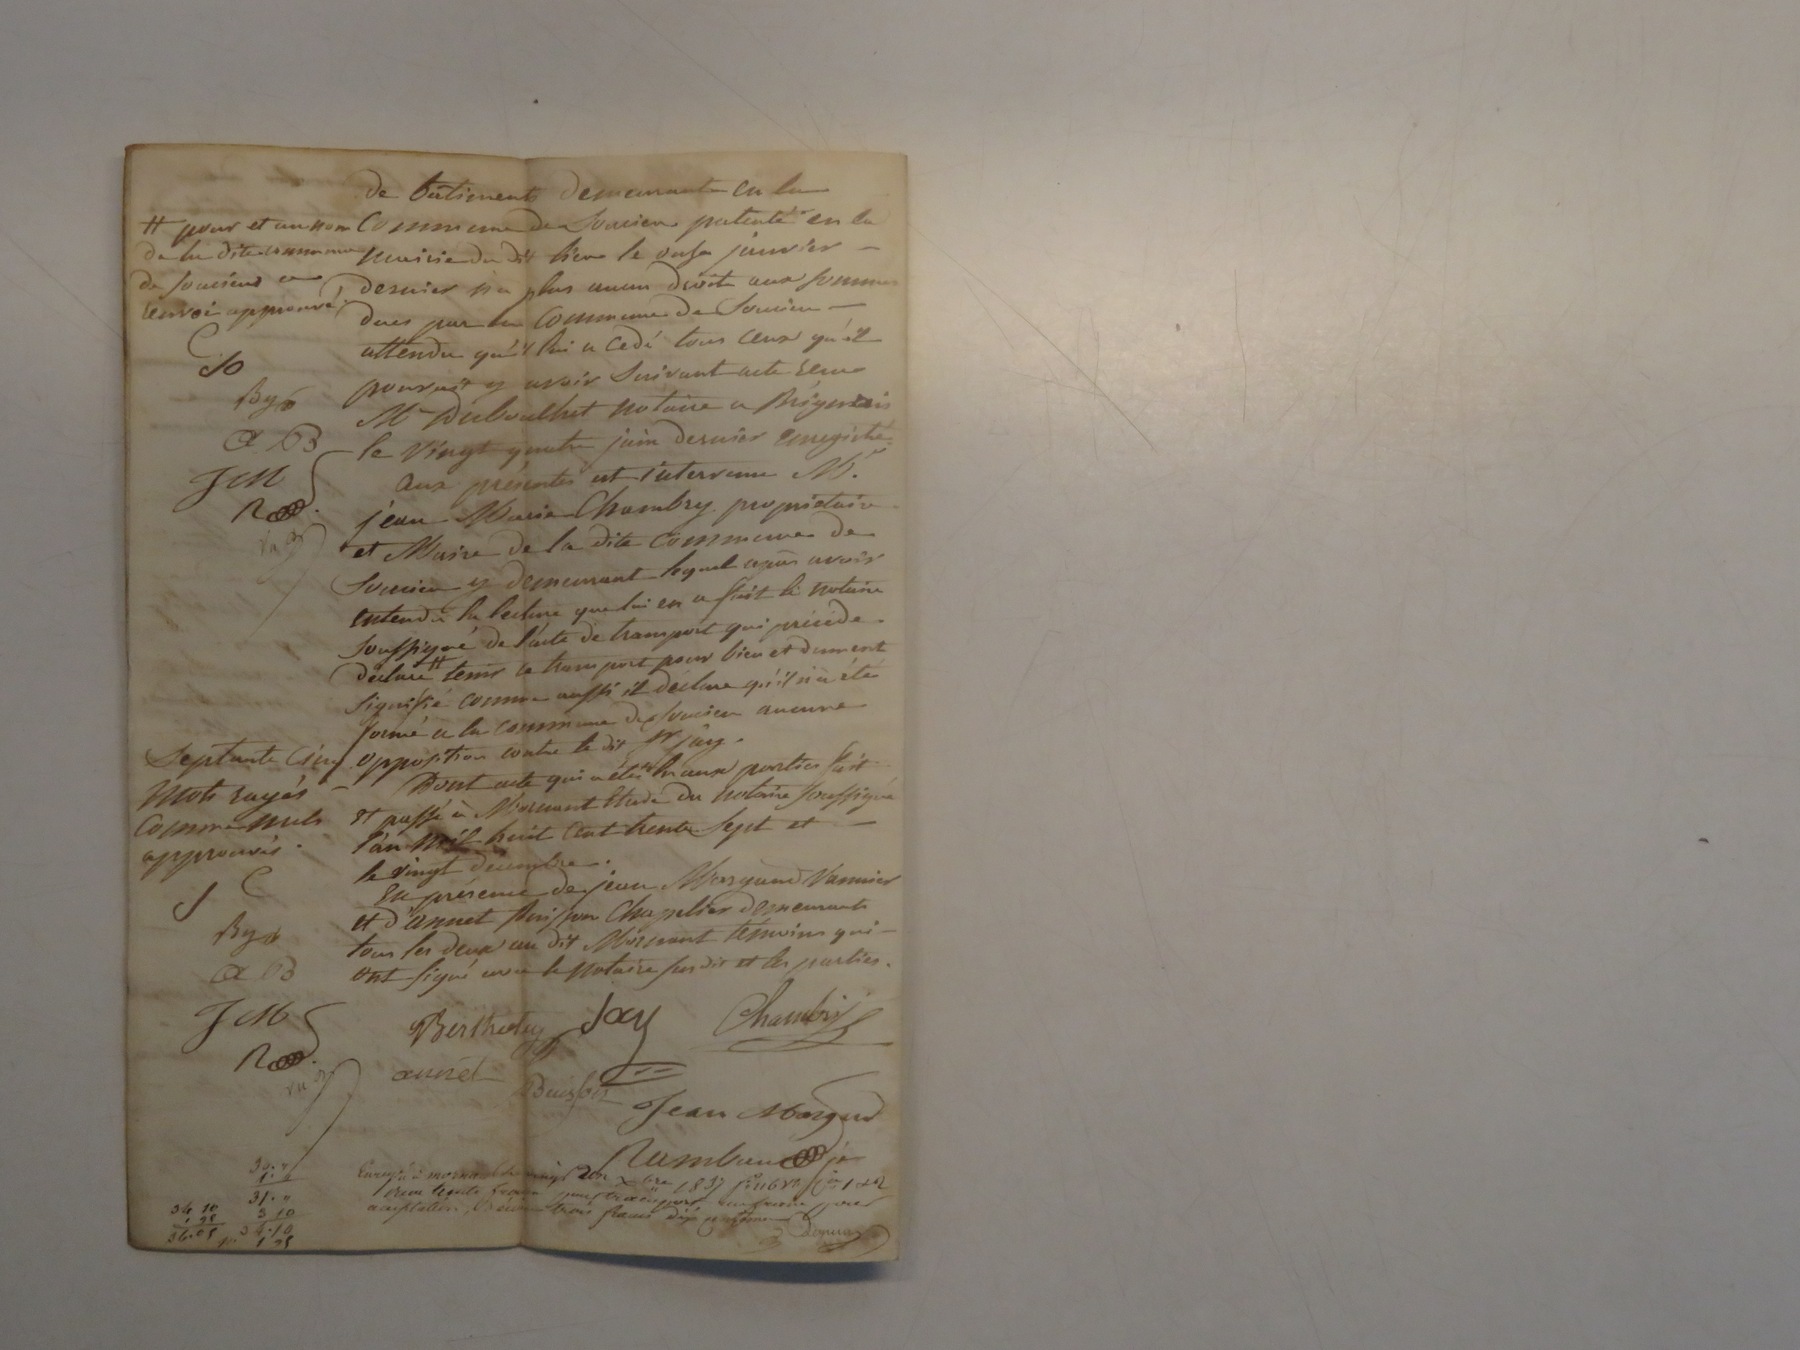 de bâtiments demeurante en la
Commune de Soucieu patenté en la
Mairie du dit lieu le onze janvier —
dernier n'a plus aucun droit aux sommes
dues par la Commune de Soucieu —
attendu qu'il lui a cedé tous ceux qu'il
pouvait y avoir suivant acte reçu
Me Duboulhet notaire a Brignais
le vingt quatre juin dernier enregistré.
aux présentes est intervenu Mr.
jean Marie Chambry propriétaire
et Maire de la dite Commune de
Soucieu y demeurant lequel après avoir
entendu la lecture que lui en a fait le notaire
soussigné de l'acte de transport qui précède.
déclare # tenir ce transport pour bien et dument
signifié comme aussi il déclare qu'il n'a été
formé a la commune de Soucieu aucune
opposition contre le dit Sr jay.
Dont acte qui a été lu aux parties fait
et passé à Mornant Etude du notaire soussigné
l'an Mil huit cent trente sept et —
le vingt decembre.
En présence de jean Morgand Vannier
et d'annet Buisson Chapelier demeurants
tous les deux au dit Mornant témoins qui —
ont signé avec le notaire susdit et les parties.
# pour et au nom
de la dite commune
de Soucieu en
renvoi approuvé
J C
By
a B
J M
R
Septante cinq
Mots rayés —
Comme nuls
approuvés.
J C
By
a B
J M
R
Jay
Chambry
annet
Buisson
Jean Morgand
Rambaud
30. "
1. "
31. "
3 10
34.10
1 95
34 10
1 95
36.05